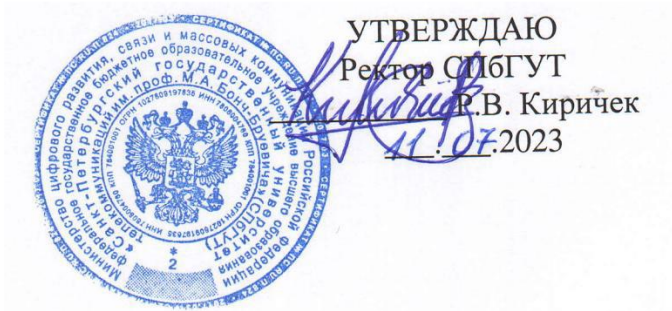 УТВЕРЖДАЮ
Ректор СПбГУТ
Р.В. Киричек
11.07.2023
Министерство цифрового развития, связи и массовых коммуникаций Российской Федерации
федеральное государственное бюджетное образовательное учреждение высшего образования
«Санкт-Петербургский государственный университет
телекоммуникаций им. проф. М.А. Бонч-Бруевича» (СПбГУТ)
*
2